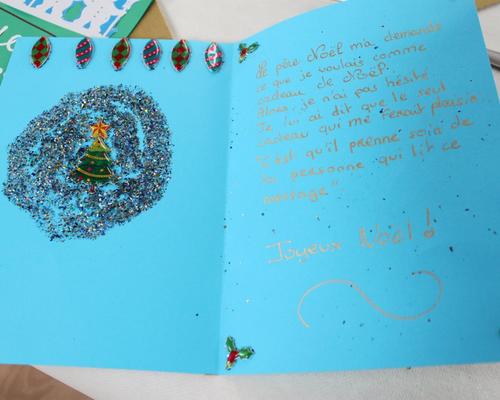 Le père Noël m'a demandé
ce que je voulais comme
cadeau de Noël.
Alors je n'ai pas hésité
Je lui ai dit que le seul
cadeau qui me ferait plaisir
"C'est qu'il prenne soin de
la personne qui lit ce
message"
Joyeux Noël !